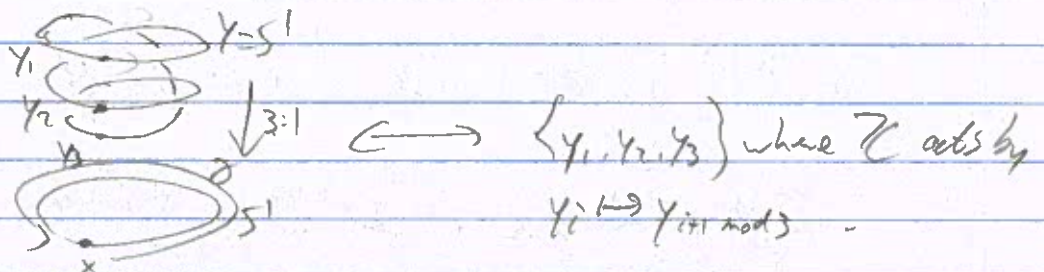 y₁ Y=S¹
y₂ 3:1 ⟷ {y₁, y₂, y₃} where ℤ acts by
S¹ yᵢ ↦ yᵢ₊₁ mod 3 .
x